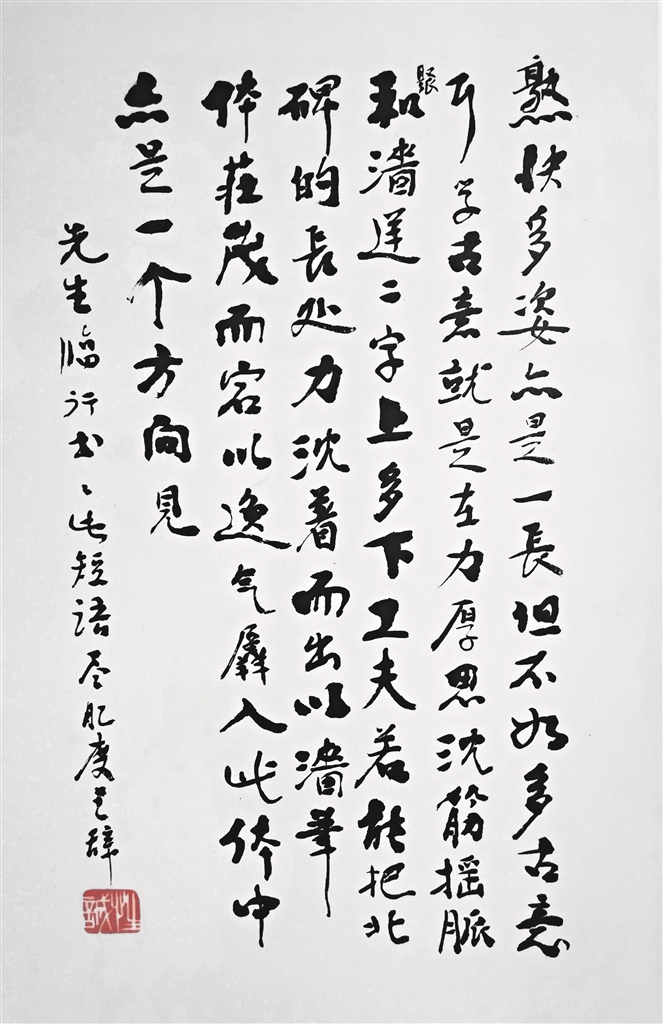 熟快多姿亦是一長但不如多古意
耳学古意就是在力厚思沈筋摇脈
聚和濇逆二字上多下工夫若能把北
碑的長处力沈着而出以濇筆
体莊茂而宕以逸气羼入此体中
亦是一个方向見
先生临行书此短语尽